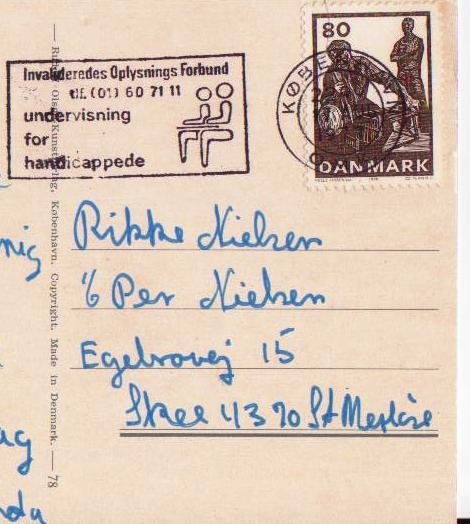 Invalideredes Oplysnings Forbund
tlf. (01) 60 71 11
undervisning
for
handicappede
80
KØBENHAVN
DANMARK
Kunstforlag, København. Copyright. Made in Denmark. — 78
Rikke Nielsen
% Per Nielsen
Egebrovej 15
4370 St Merløse